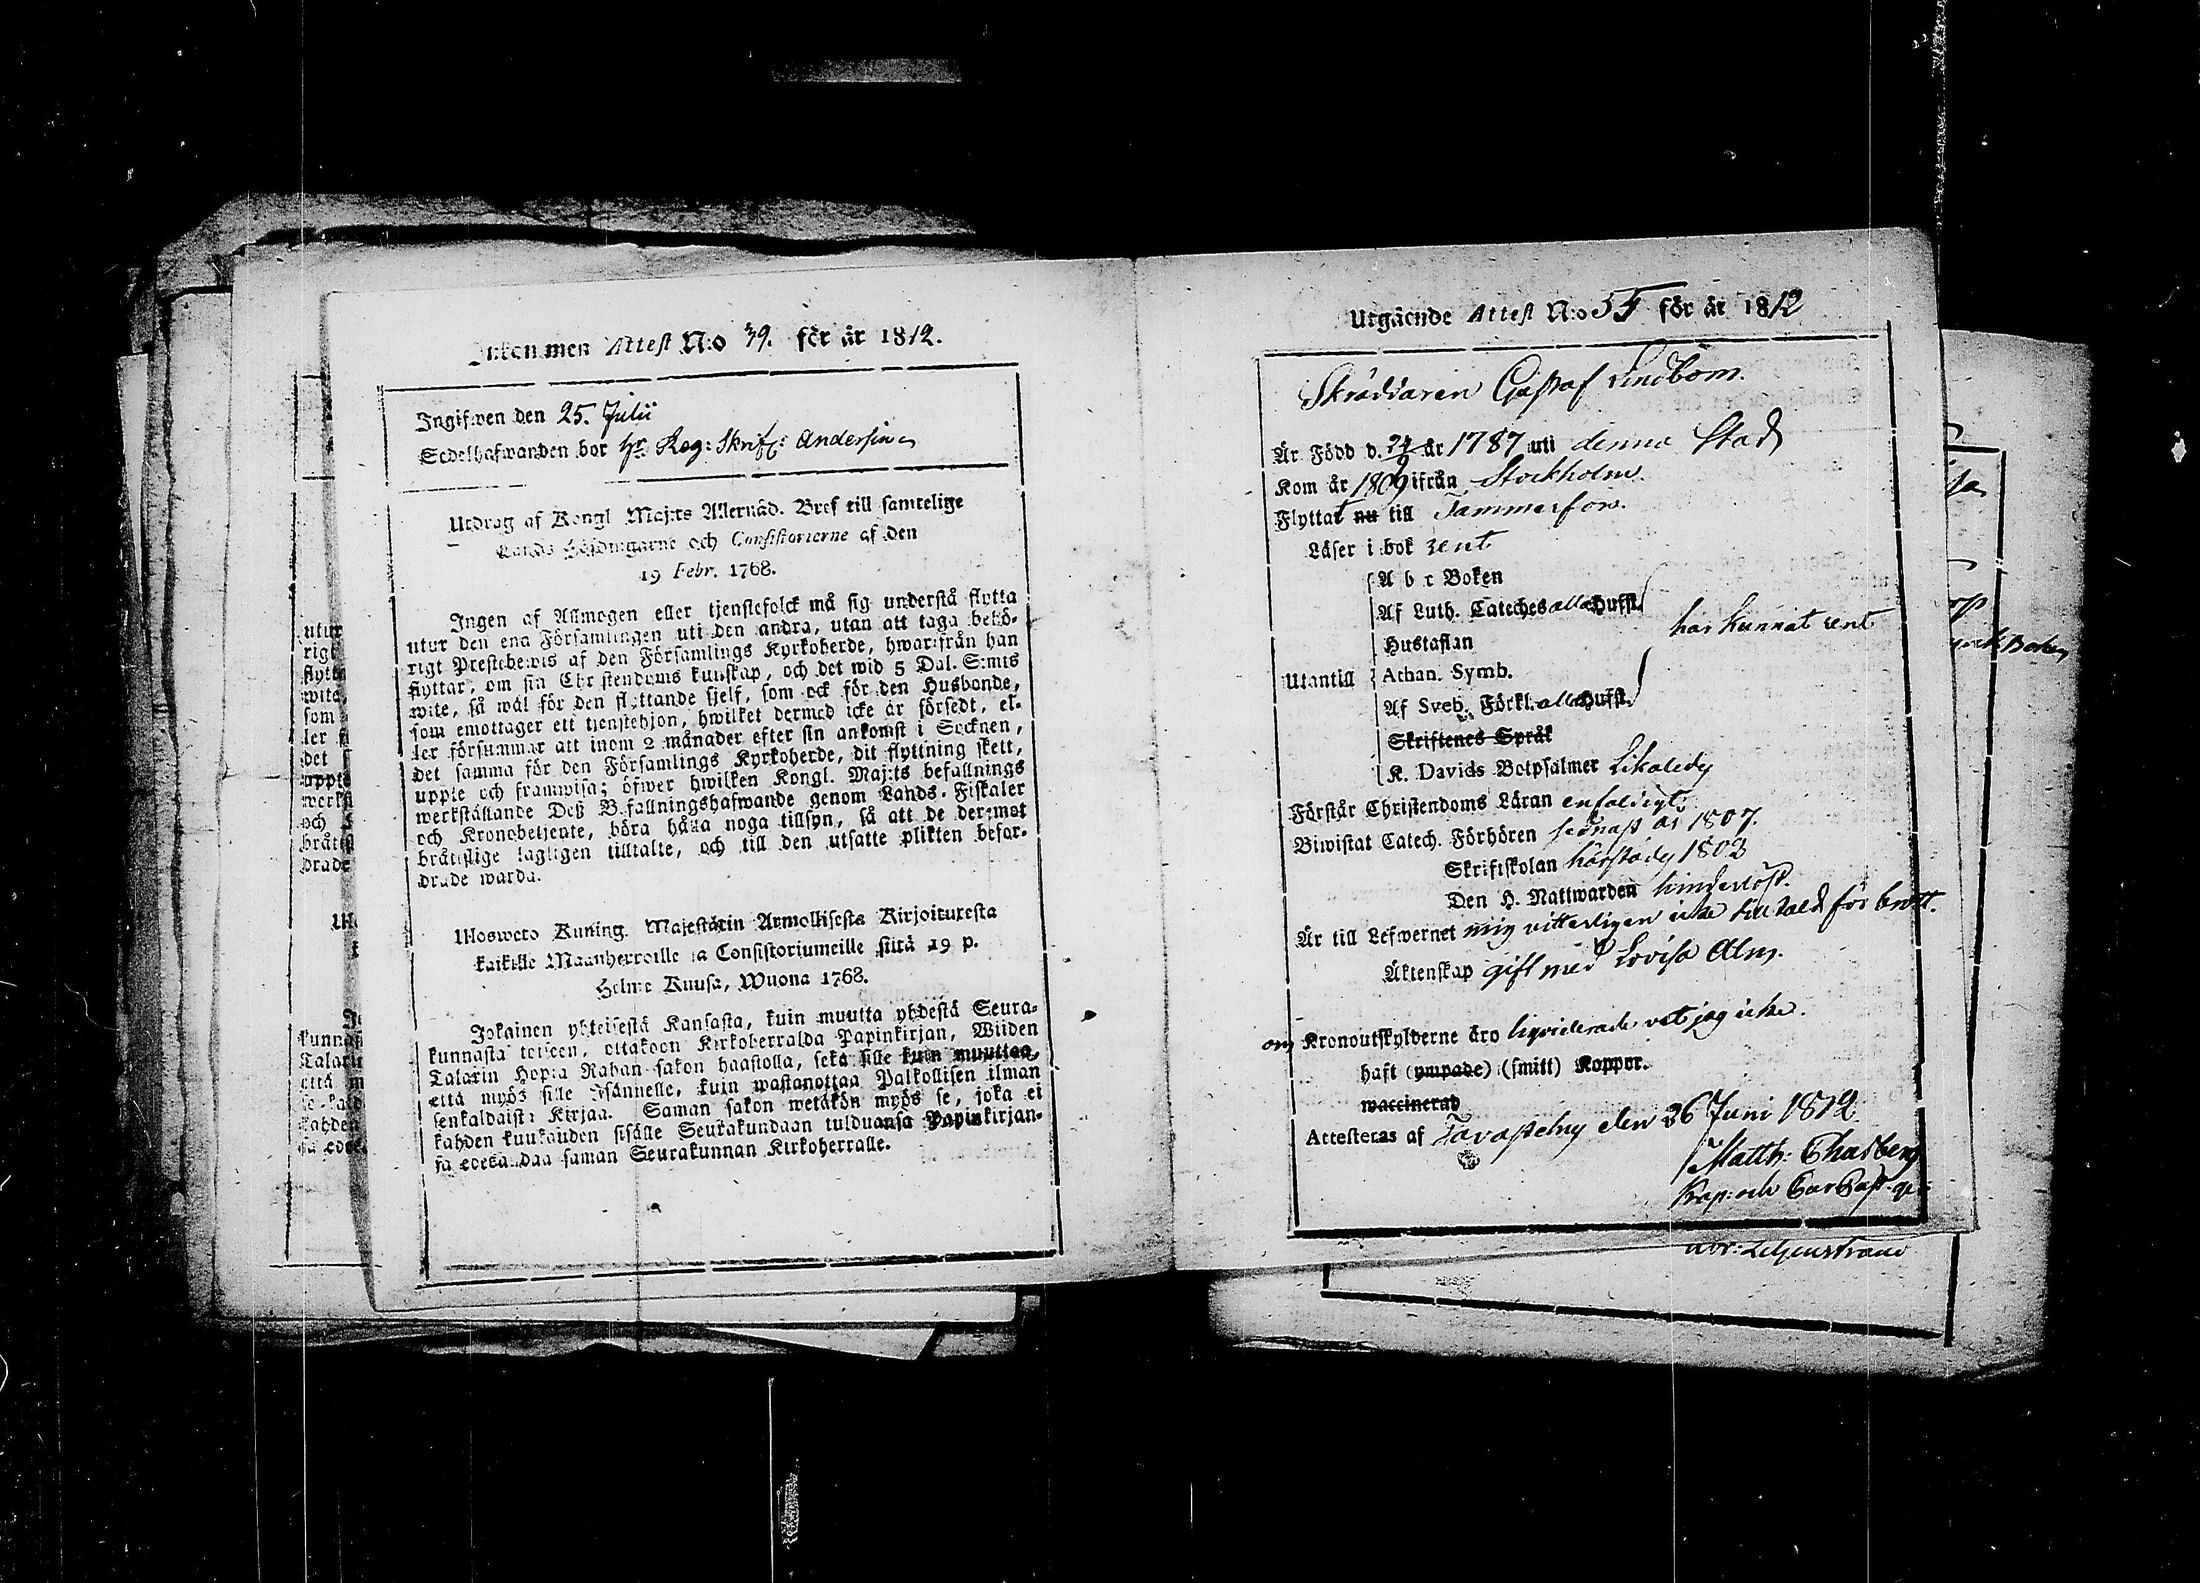 Inkommen Attest N:o 39. för år 1812.
Ingifwen den 25. Julii
Sedelhafwanden bor hr Reg: Skrif: Andersin
Utdrag af Kongl Maj:ts Allernåd. Bref till samtelige
Lands Höfdingarne och Consistorierne af den
19 Febr. 1768.
Ingen af Allmogen eller tjenstefolck må sig understå flytta
utur den ena Församlingen uti den andra, utan att taga behö-
rigt Prestebewis af den Församlings Kyrkoherde, hwarifrån han
flyttar, om sin Christendoms kunskap, och det wid 5 Dal. S:mts
wite, så wäl för den flyttande sjelf, som ock för den Husbonde,
som emottager ett tjenstehjon, hwilket dermed icke är försedt, el-
ler försummar att inom 2 månader efter sin ankomst i Socknen,
det samma för den Församlings Kyrkoherde, dit flyttning skett,
uppte och framwisa; öfwer hwilken Kongl. Maj:ts befallnings
werkställande Deß Befallningshafwande genom Lands-Fiskaler
och Kronobetjente, böra hålla noga tillsyn, så att de deremot
bråttslige lagligen tilltalte, och till den utsatte plikten befor-
drade warda.
Ulosweto Kuning. Majestätin Armollisesta Kirjoituxesta
kaikille Maanherroille ja Consistoriumeille siitä 19 p.
Helme Kuusa, Wuona 1768.
Jokainen yhteisestä Kansasta, kuin muutta yhdestä Seura-
kunnasta toiseen, ottakoon Kirkoherralda Papinkirjan, Wiiden
Talarin Hopia Rahan sakon haastolla, sekä sille kuin muuttaa,
että myös sille Isännelle, kuin wastanottaa Palkollisen ilman
senkaldaista Kirjaa. Saman sakon wetäkön myös se, joka ei
kahden kuukauden sisälle Seurakundaan tulduansa Papinkirjan-
sa edeskandaa saman Seurakunnan Kirkoherralle.
Utgående Attest N:o 55 för år 1812
Skräddaren Gustaf Lindbom.
Är Född d. 24/9 år 1787 uti denna Stad
Kom år 1809 ifrån Stockholm.
Flyttat nu till Tammerfors.
Läser i bok rent
A b c Boken
Af Luth. Cateches alla Hufst.
Hustaflan
har kunnat rent
Utantill
Athan. Symb.
Af Sveb. Förkl. alla Hufst.
Skriftenes Språk
K. Davids Botpsalmer Likaledes
Förstår Christendoms Läran enfaldigt.
Biwistat Catech. Förhören sednast år 1807.
Skriftskolan härstädes 1803
Den H. Nattwarden hinderlöst.
Är till Lefwernet mig vitterligen icke tilltald för brott.
Äktenskap gift med Lovisa Alm.
om Kronoutskylderne äro liqviderade vet jag icke.
haft (ympade) (smitt) Koppor.
waccinerad
Attesteras af Tavastehus den 26 Juni 1812
Matth:
Kap: och